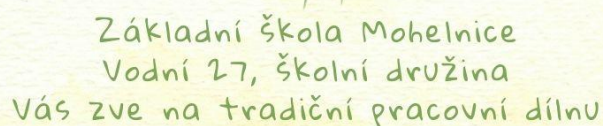 Základní škola Mohelnice
Vodní 27, školní družina
Vás zve na tradiční pracovní dílnu